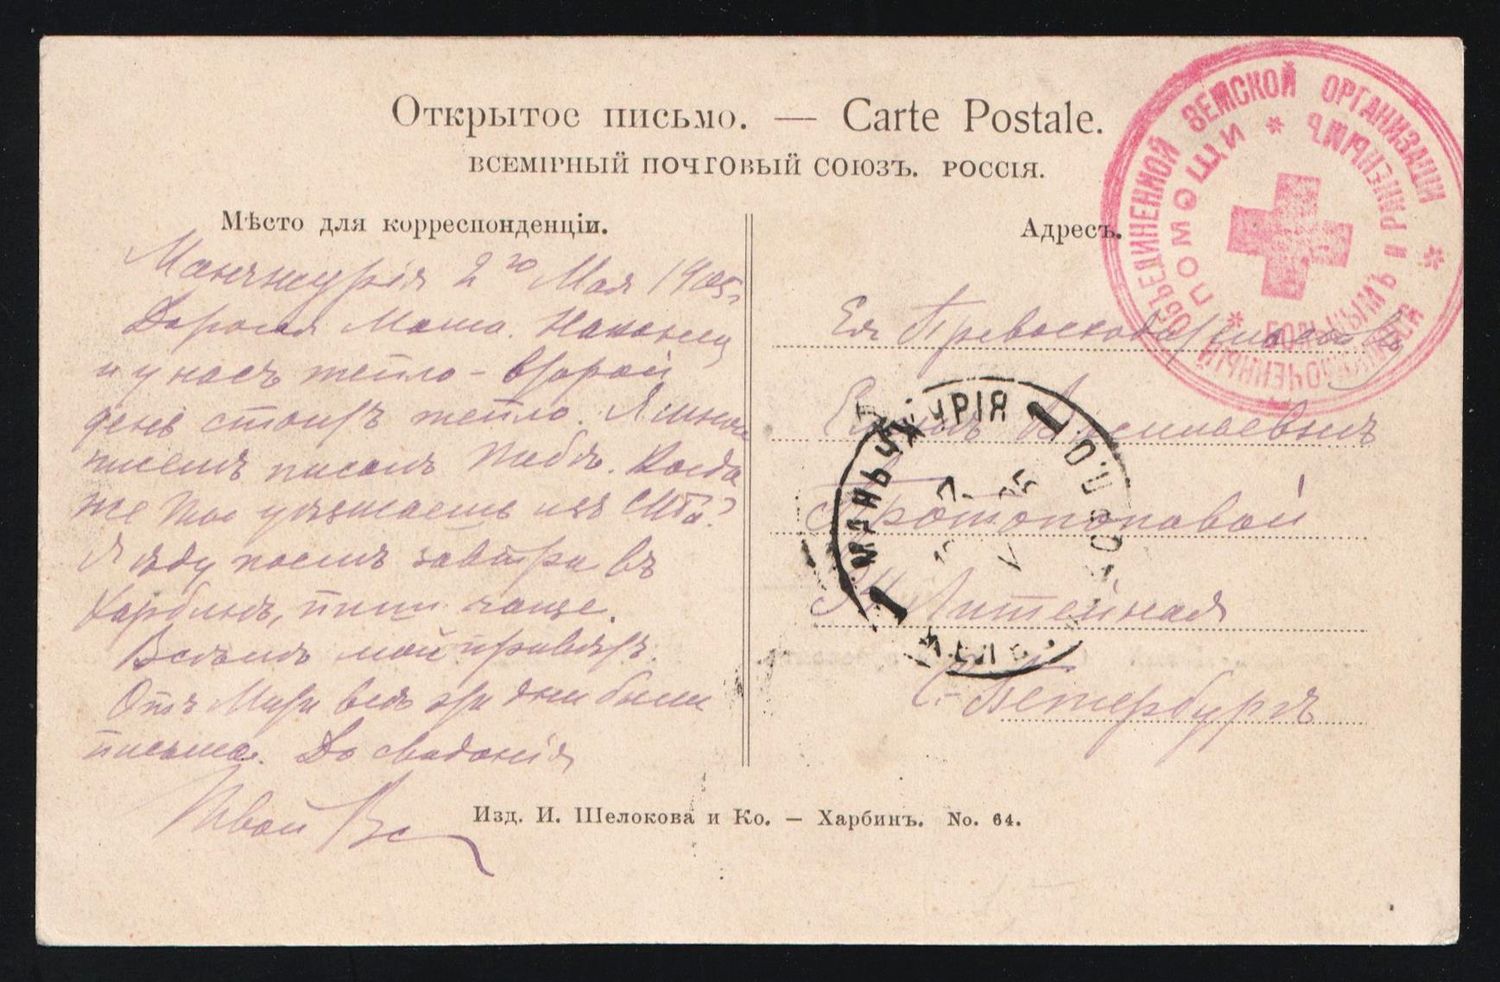 Открытое письмо. — Carte Postale.
ВСЕМІРНЫЙ ПОЧТОВЫЙ СОЮЗЪ. РОССІЯ.
Мѣсто для корреспонденціи.
Манчжурія 2го Мая 1905г.
Дорогая Маша. Наконец
и у насъ тепло - второй
день стоитъ тепло. Я
писемъ писалъ Тебѣ. Когда
же Ты уѣзжаешь изъ СПБ?
Я ѣду послѣ завтра въ
Харбинъ, пиши чаще.
Всѣмъ мой привѣтъ.
Отъ три дни были
письма. До свиданія
Твой
Адресъ.
Ея Превосходительству
Васильевнѣ
Протопоповой
Литейная
С-Петербургъ
ОБЪЕДИНЕННОЙ ЗЕМСКОЙ ОРГАНИЗАЦІИ
ПОМОЩИ * БОЛЬНЫМЪ И РАНЕНЫМЪ
МАНЬЧЖУРІЯ 1
Изд. И. Щелокова и Ко. — Харбинъ. No. 64.